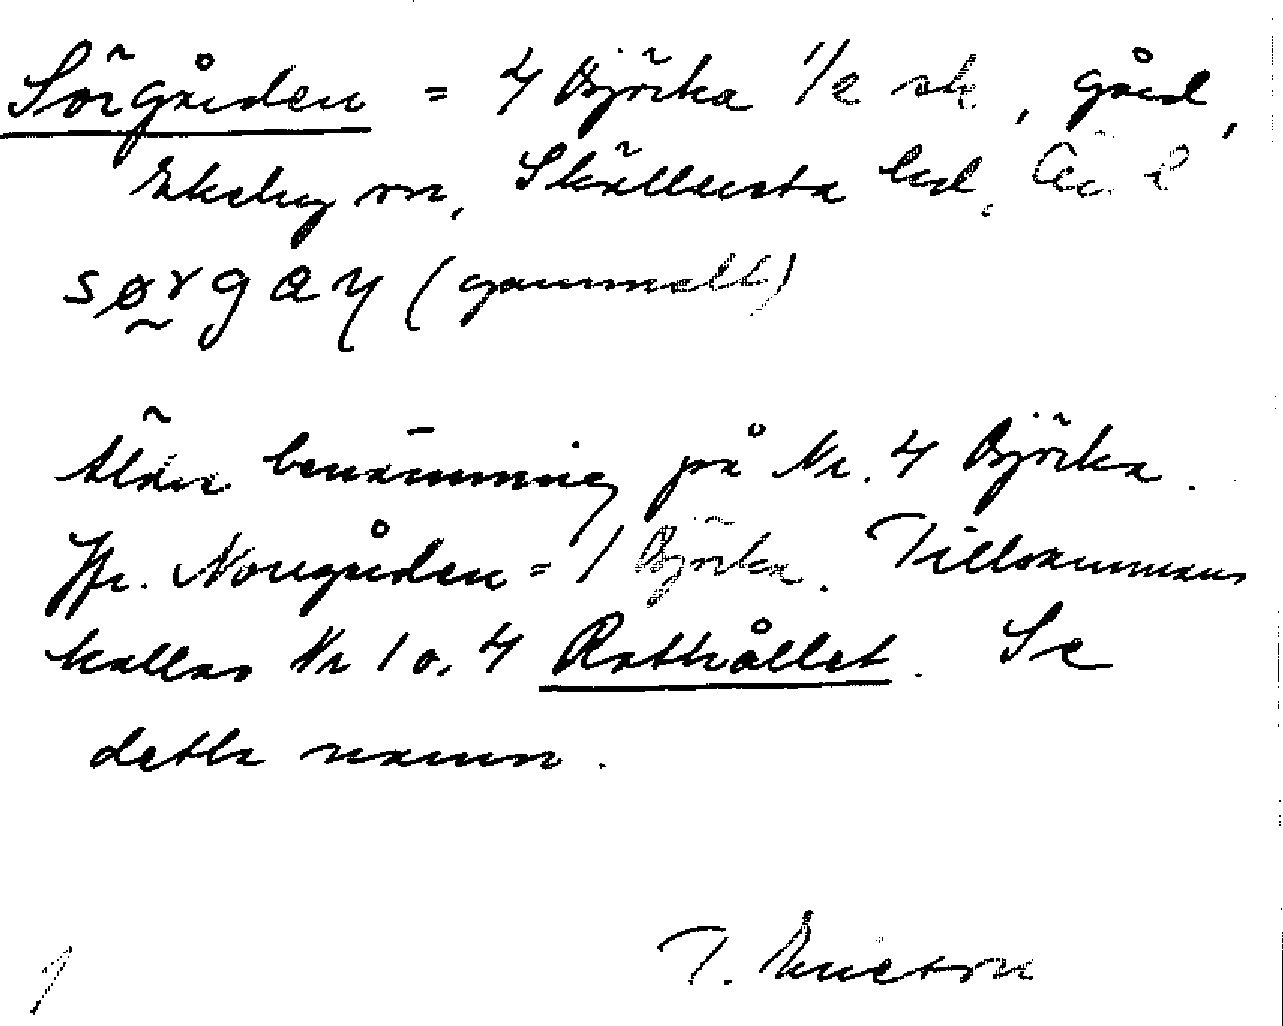 Sörgården = 4 Björka 1/2 sk, gård,
Ekeby sn, Skyllersta hd,
sørgaɳ (gammalt)
Äldre benämning på Nr. 4 Björka.
Jfr. Norrgården = 1 Björka. Tillsammans
kallas Nr 1 o. 4 Rothållet. Se
detta namn.
T. Ericson